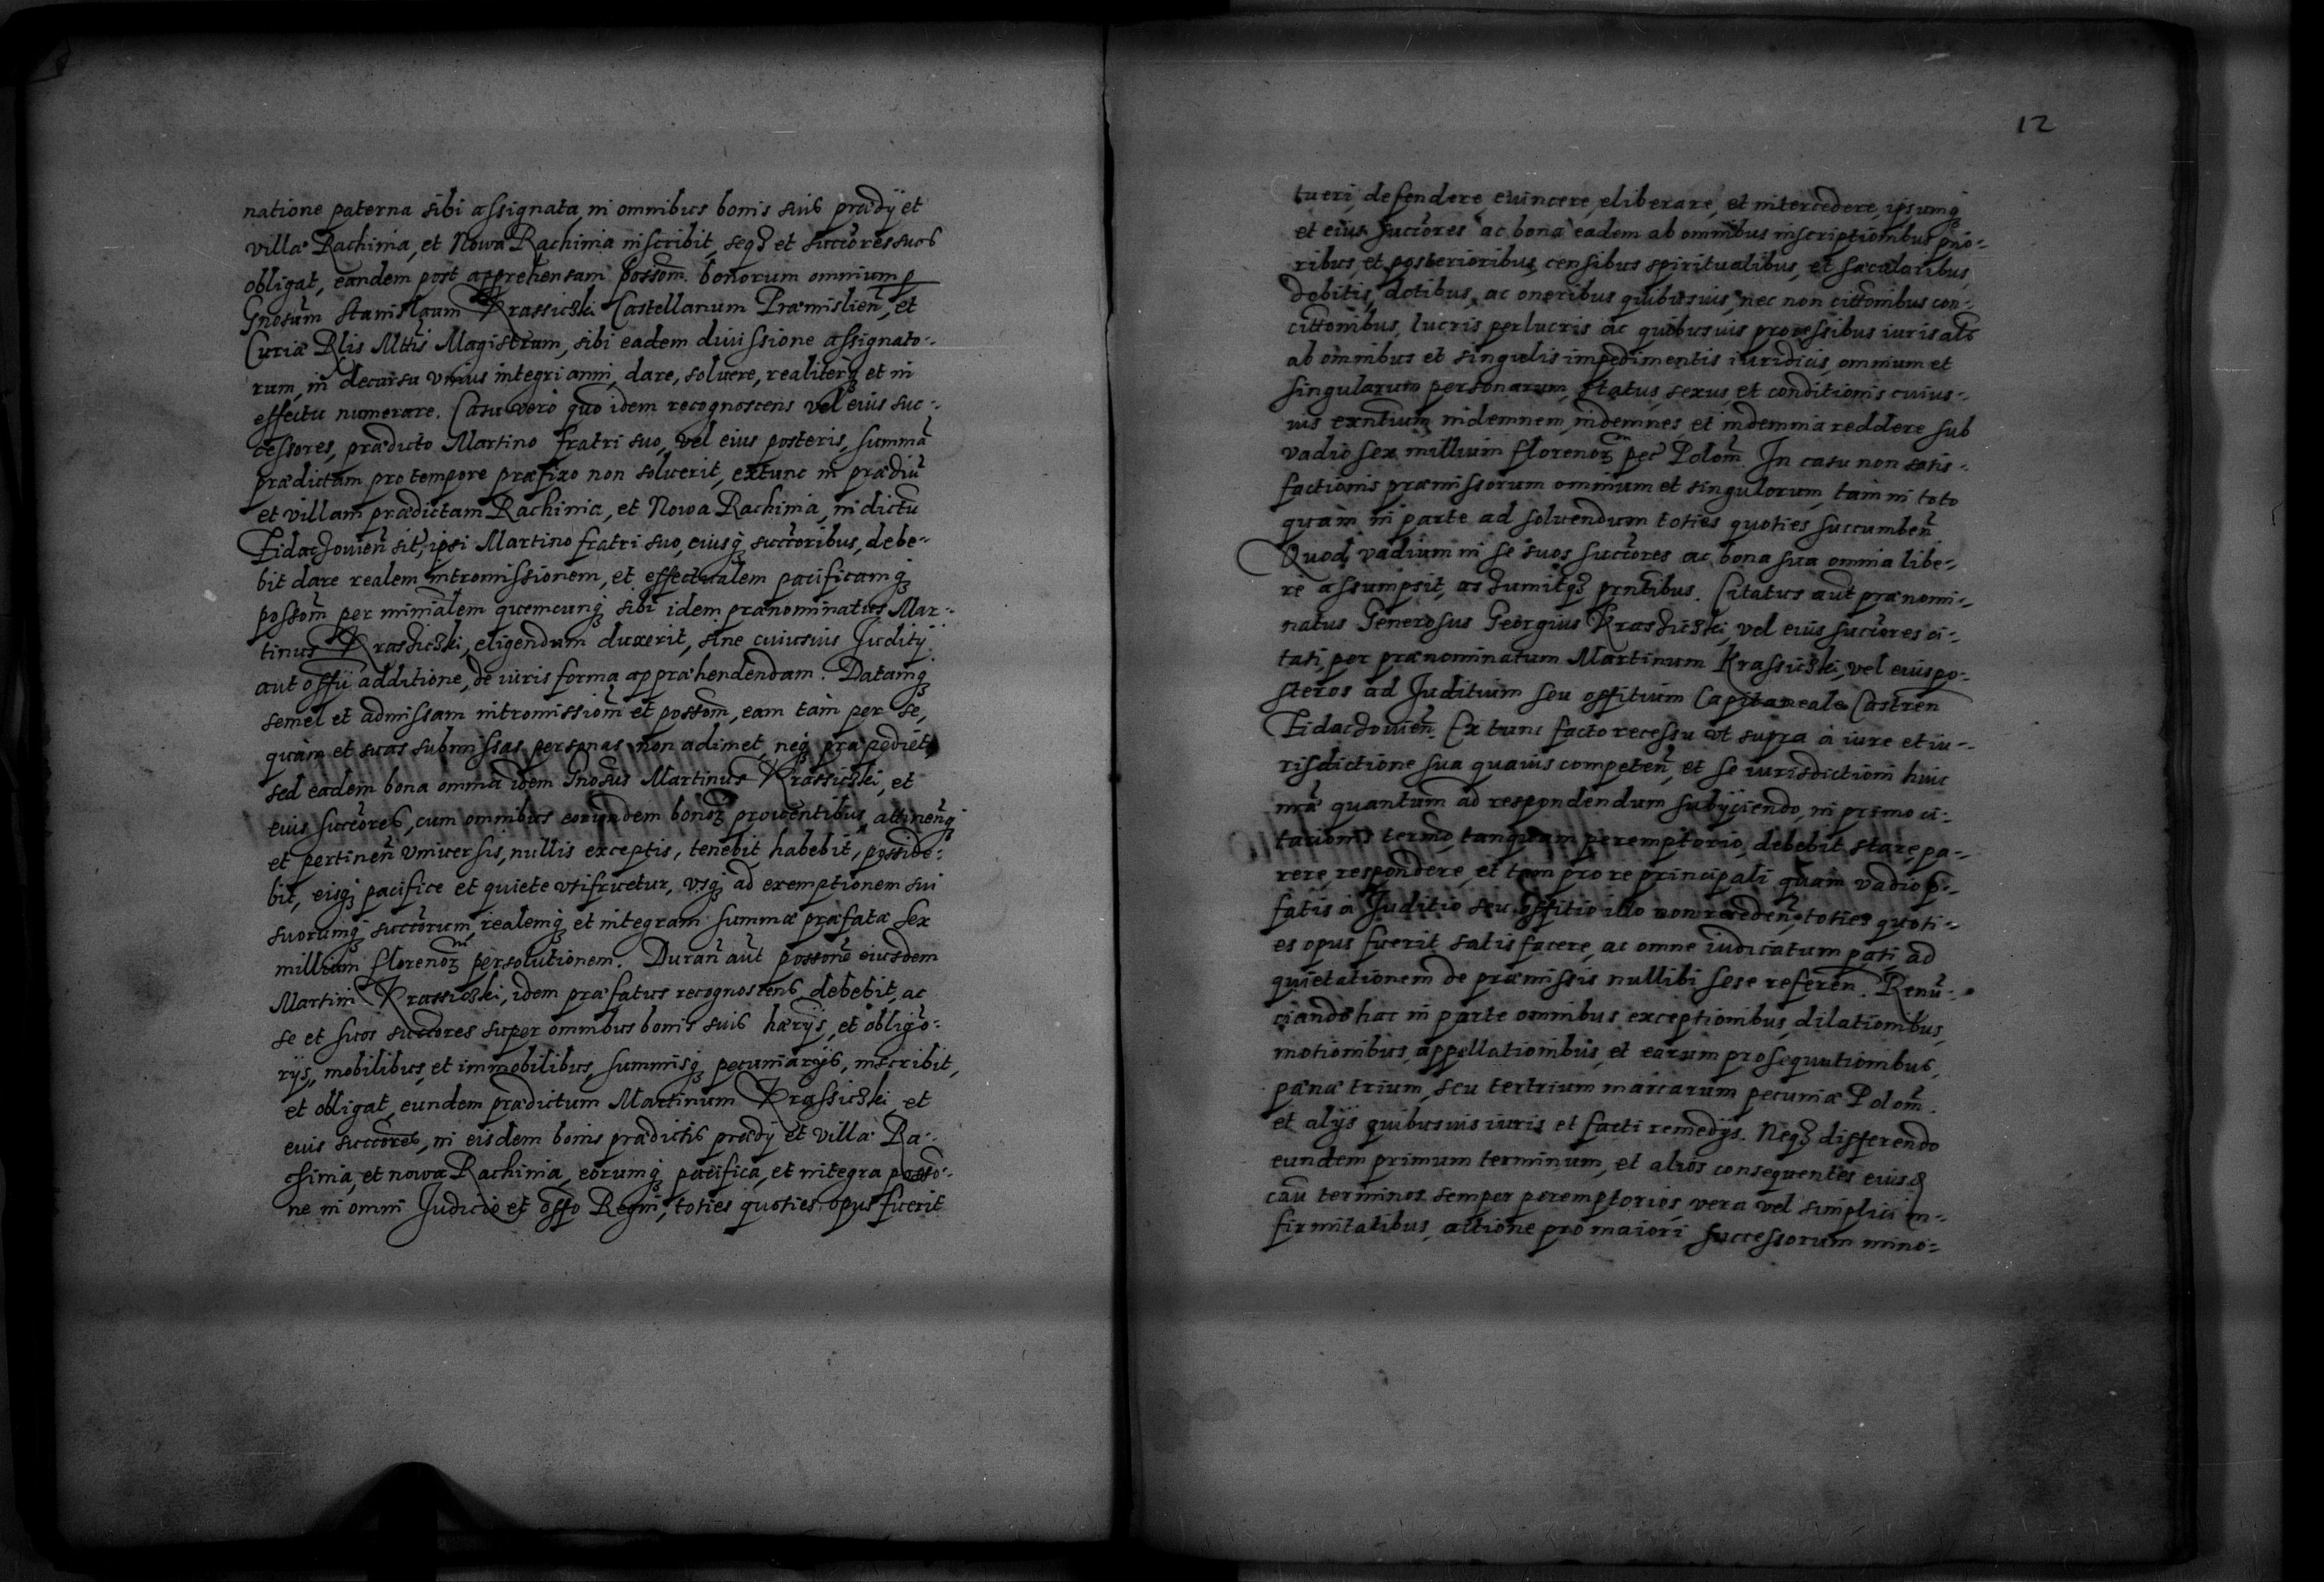 natione paterna sibi assignata, in omnibus bonis suis prædÿ et
villæ Rachinia, et Nowa Rachinia inscribit, seqʒ et succōres suos
obligat, eandem post apprehensam possom̄ bonorum omnium p
Gnosūm Stanislaum Krassicʒki Castellanum Præmislien̄, et
Curiæ Rlis Mttis Magistrum, sibi eadem diuissione assignato-
rum, in decursu vnius integri anni, dare, soluere, realiterqʒ et in
effectu numerare. Casu verò quo idem recognoscens vel eius suc-
cessores, prædicto Martino fratri suo, vel eius posteris, summā
prædictam pro tempore præfixo non soluerit, extunc in prædiū
et villam prædictam Rachinia, et Nowa Rachinia, in dictū
Fidacʒouien̄ sit, ipsi Martino fratri suo, eiusqʒ succōribus, debe-
bit dare realem intromissionem, et effectualem pacificamqʒ
possom̄ per minīalem quemcunqʒ sibi idem prænominatus Mar-
tinus Krassicʒki, eligendum duxerit, sine cuiusuis Juditÿ
aut offÿ additione, de iuris forma appræhendendam. Datamqʒ
semel et admissam intromissiom̄ et possom̄, eam tàm per se,
quàm et suas submissas personas non adimet, neqʒ præpediet,
sed eadem bona omnia idem Gnosus Martinus Krassicʒki, et
eius succōres, cum omnibus eorundem bonoꝝ prouentibus, attinen̄qʒ
et pertinen̄ vniuersis, nullis exceptis, tenebit, habebit, posside-
bit, eisqʒ pacifice et quiete vtifruetur, vsqʒ ad exemptionem sui
suorumqʒ succōrum, realemqʒ et integram summæ præfatæ sex
millium florenoꝝ persolutionem. Duran̄ aūt possone eiusdem
Martini Krassicʒki, idem præfatus recognoscens debebit, ac
se et suos succōres super omnibus bonis suis hærÿs, et obligo-
rÿs, mobilibus, et immobilibus, summisqʒ pecuniarÿs, inscribit,
et obligat, eundem prædictum Martinum Krassicʒki, et
eius succōres, in eisdem bonis prædictis prædÿ et villæ Ra-
chinia, et nowa Rachinia, eorumqʒ pacifica, et integra posso-
ne in omni Judicio et offo Regni, toties quoties opus fuerit
12
tueri, defendere, euincere, eliberare, et intercedere, ipsumqʒ
et eius succōres ac bona eadem ab omnibus inscriptionibus prio-
ribus, et posterioribus, censibus spiritualibus, et sæcularibus,
debitis, dotibus, ac oneribus quibusuis, nec non cittōnibus con-
cittōnibus, lucris perlucris ac quibusuis processibus iuris als
ab omnibus et singulis impedimentis iuridicis, omnium et
singularum personarum, status, sexus et conditionis cuius-
uis exn̄tium, indemnem, indemnes et indemnia reddere sub
vadio sex millium florenoꝝ pec̄ Polom̄. In casu non satis-
factionis præmissorum omnium et singulorum, tam in toto
quàm in parte ad soluendum toties quoties succumben̄
Quod vadium in se suos succōres ac bona sua omnia libe-
rè assumpsit, assumitqʒ prn̄tibus. Citatus aūt prænomi-
natus Generosus Georgius Krassicʒki, vel eius succōres ci-
tati, per prænominatum Martinum Krassicʒki, vel eius po-
steros ad Juditium seu offitium Capitaneale Castren̄
Fidacʒouien̄. Extunc facto recessu vt supra à iure et iu-
risdictione sua quauis competen̄, et se iurisdictioni huic
nrā quantum ad respondendum subÿciendo, in primo ci-
tationis termo, tanquam peremptorio, debebit stare, pa-
rere, respondere, et tam pro re principali quàm vadio p̄-
fatis à Juditio seu offitio illo non receden̄, toties quoti-
es opus fuerit, satisfacere, ac omne iudicatum pati, ad
quietationem de præmissis nullibi sese referen̄. Renū-
ciando hac in parte omnibus exceptionibus, dilationibus,
motionibus, appellationibus, et earum prosequutionibus,
pænæ trium, seu tertrium marcarum pecuniæ Polom̄.
et alÿs quibusuis iuris et facti remedÿs. Neqʒ differendo
eundem primum terminum, et alios consequentes eiusd
caū terminos semper peremptorios, vera vel simplici in-
firmitatibus, actione pro maiori successorum mino-